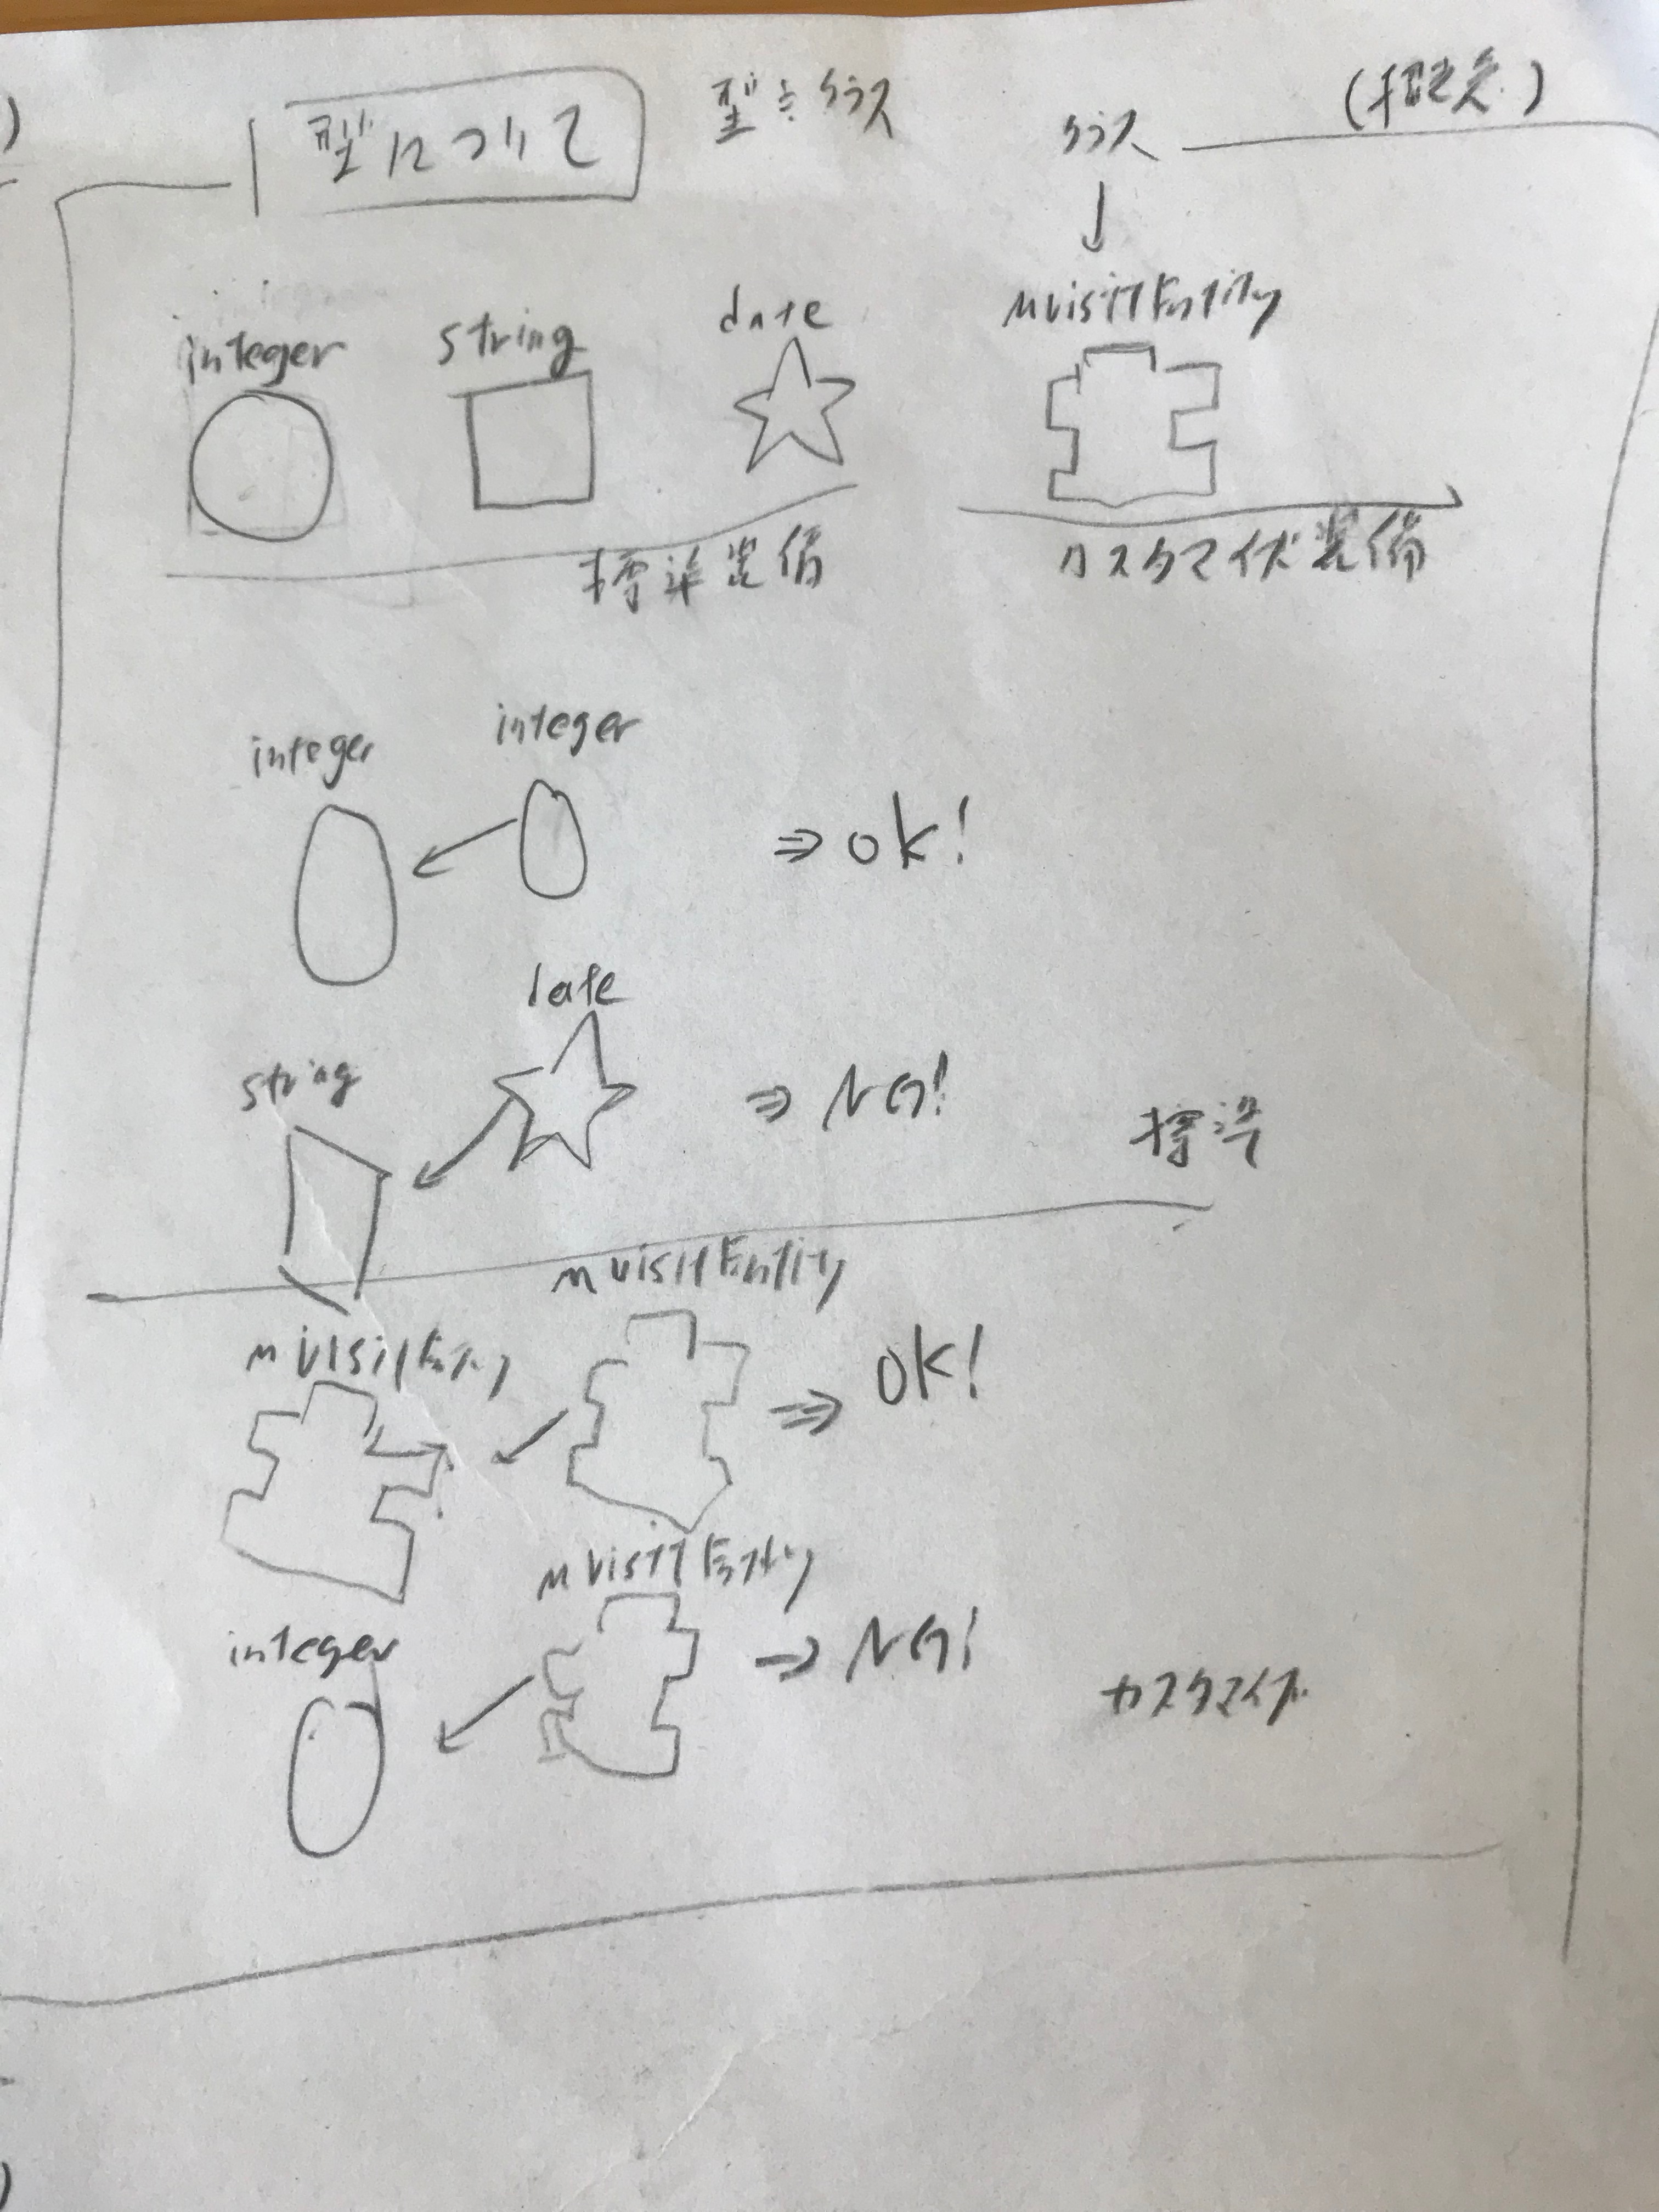 型について
型≒クラス
クラス
(概念)
integer
string
date
MVisitEntity
標準装備
カスタマイズ装備
integer
integer
⇒ OK!
date
string
⇒ NG!
標準
MVisitEntity
MVisitEntity
⇒ OK!
MVisitEntity
integer
⇒ NG!
カスタマイズ